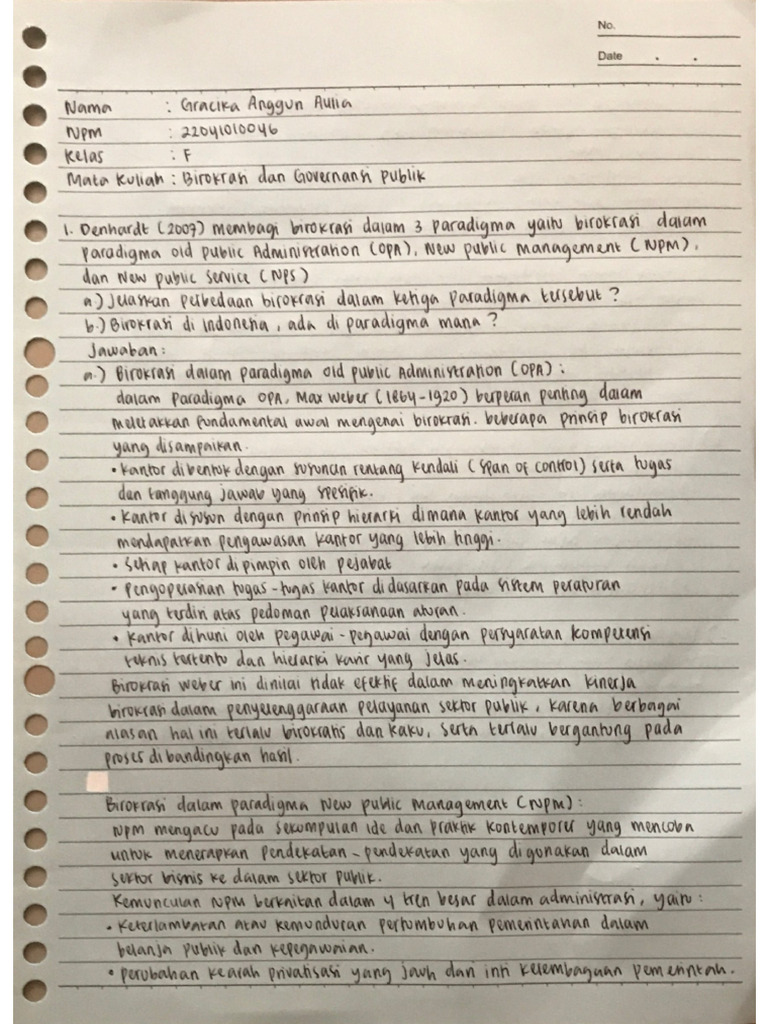 No.
Date . .
Nama : Gracika Anggun Aulia
Npm : 22041010046
Kelas : F
Mata Kuliah : Birokrasi dan Governansi Publik
1. Denhardt (2007) membagi birokrasi dalam 3 paradigma yaitu birokrasi dalam
paradigma old public Administration (OPA), New public Management (NPM),
dan New public Service (NPS)
a.) Jelaskan perbedaan birokrasi dalam ketiga paradigma tersebut ?
b.) Birokrasi di Indonesia, ada di paradigma mana ?
Jawaban :
a.) Birokrasi dalam paradigma old public Administration (OPA) :
dalam paradigma OPA, Max Weber (1864-1920) berperan penting dalam
meletakkan fundamental awal mengenai birokrasi. beberapa prinsip birokrasi
yang disampaikan.
• Kantor dibentuk dengan susunan rentang kendali (span of control) serta tugas
dan tanggung jawab yang spesifik.
• Kantor disusun dengan prinsip hierarki dimana kantor yang lebih rendah
mendapatkan pengawasan kantor yang lebih tinggi.
• Setiap kantor dipimpin oleh pejabat
• Pengoperasian tugas-tugas kantor didasarkan pada sistem peraturan
yang terdiri atas pedoman pelaksanaan aturan.
• Kantor dihuni oleh pegawai-pegawai dengan persyaratan kompetensi
teknis tertentu dan hierarki karir yang jelas.
Birokrasi weber ini dinilai tidak efektif dalam meningkatkan kinerja
birokrasi dalam penyelenggaraan pelayanan sektor publik, karena berbagai
alasan hal ini terlalu birokratis dan kaku, serta terlalu bergantung pada
proses dibandingkan hasil.
Birokrasi dalam paradigma New public Management (NPM) :
NPM mengacu pada sekumpulan ide dan praktik kontemporer yang mencoba
untuk menerapkan pendekatan-pendekatan yang digunakan dalam
sektor bisnis ke dalam sektor publik.
Kemunculan NPM berkaitan dalam 4 tren besar dalam administrasi, yaitu :
• Keterlambatan atau kemunduran pertumbuhan pemerintahan dalam
belanja publik dan kepegawaian.
• perubahan kearah privatisasi yang jauh dari inti kelembagaan pemerintah.